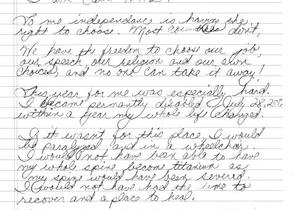 To me independance is having the
right to choose. Most countries don't,
We have the freedom to choose our job,
our speech, our religion and our own
choices and no one can take it away!
This year for me was especially hard.
I became permantly disabled July 28, 20
within a year my whole life changed.
If it wasent for this place, I would
be paralyzed and in a wheelchair.
I would not have been able to have
my whole spine become titanium as
my spine would have been severed.
I would not have had the time to
recover and a place to heal.